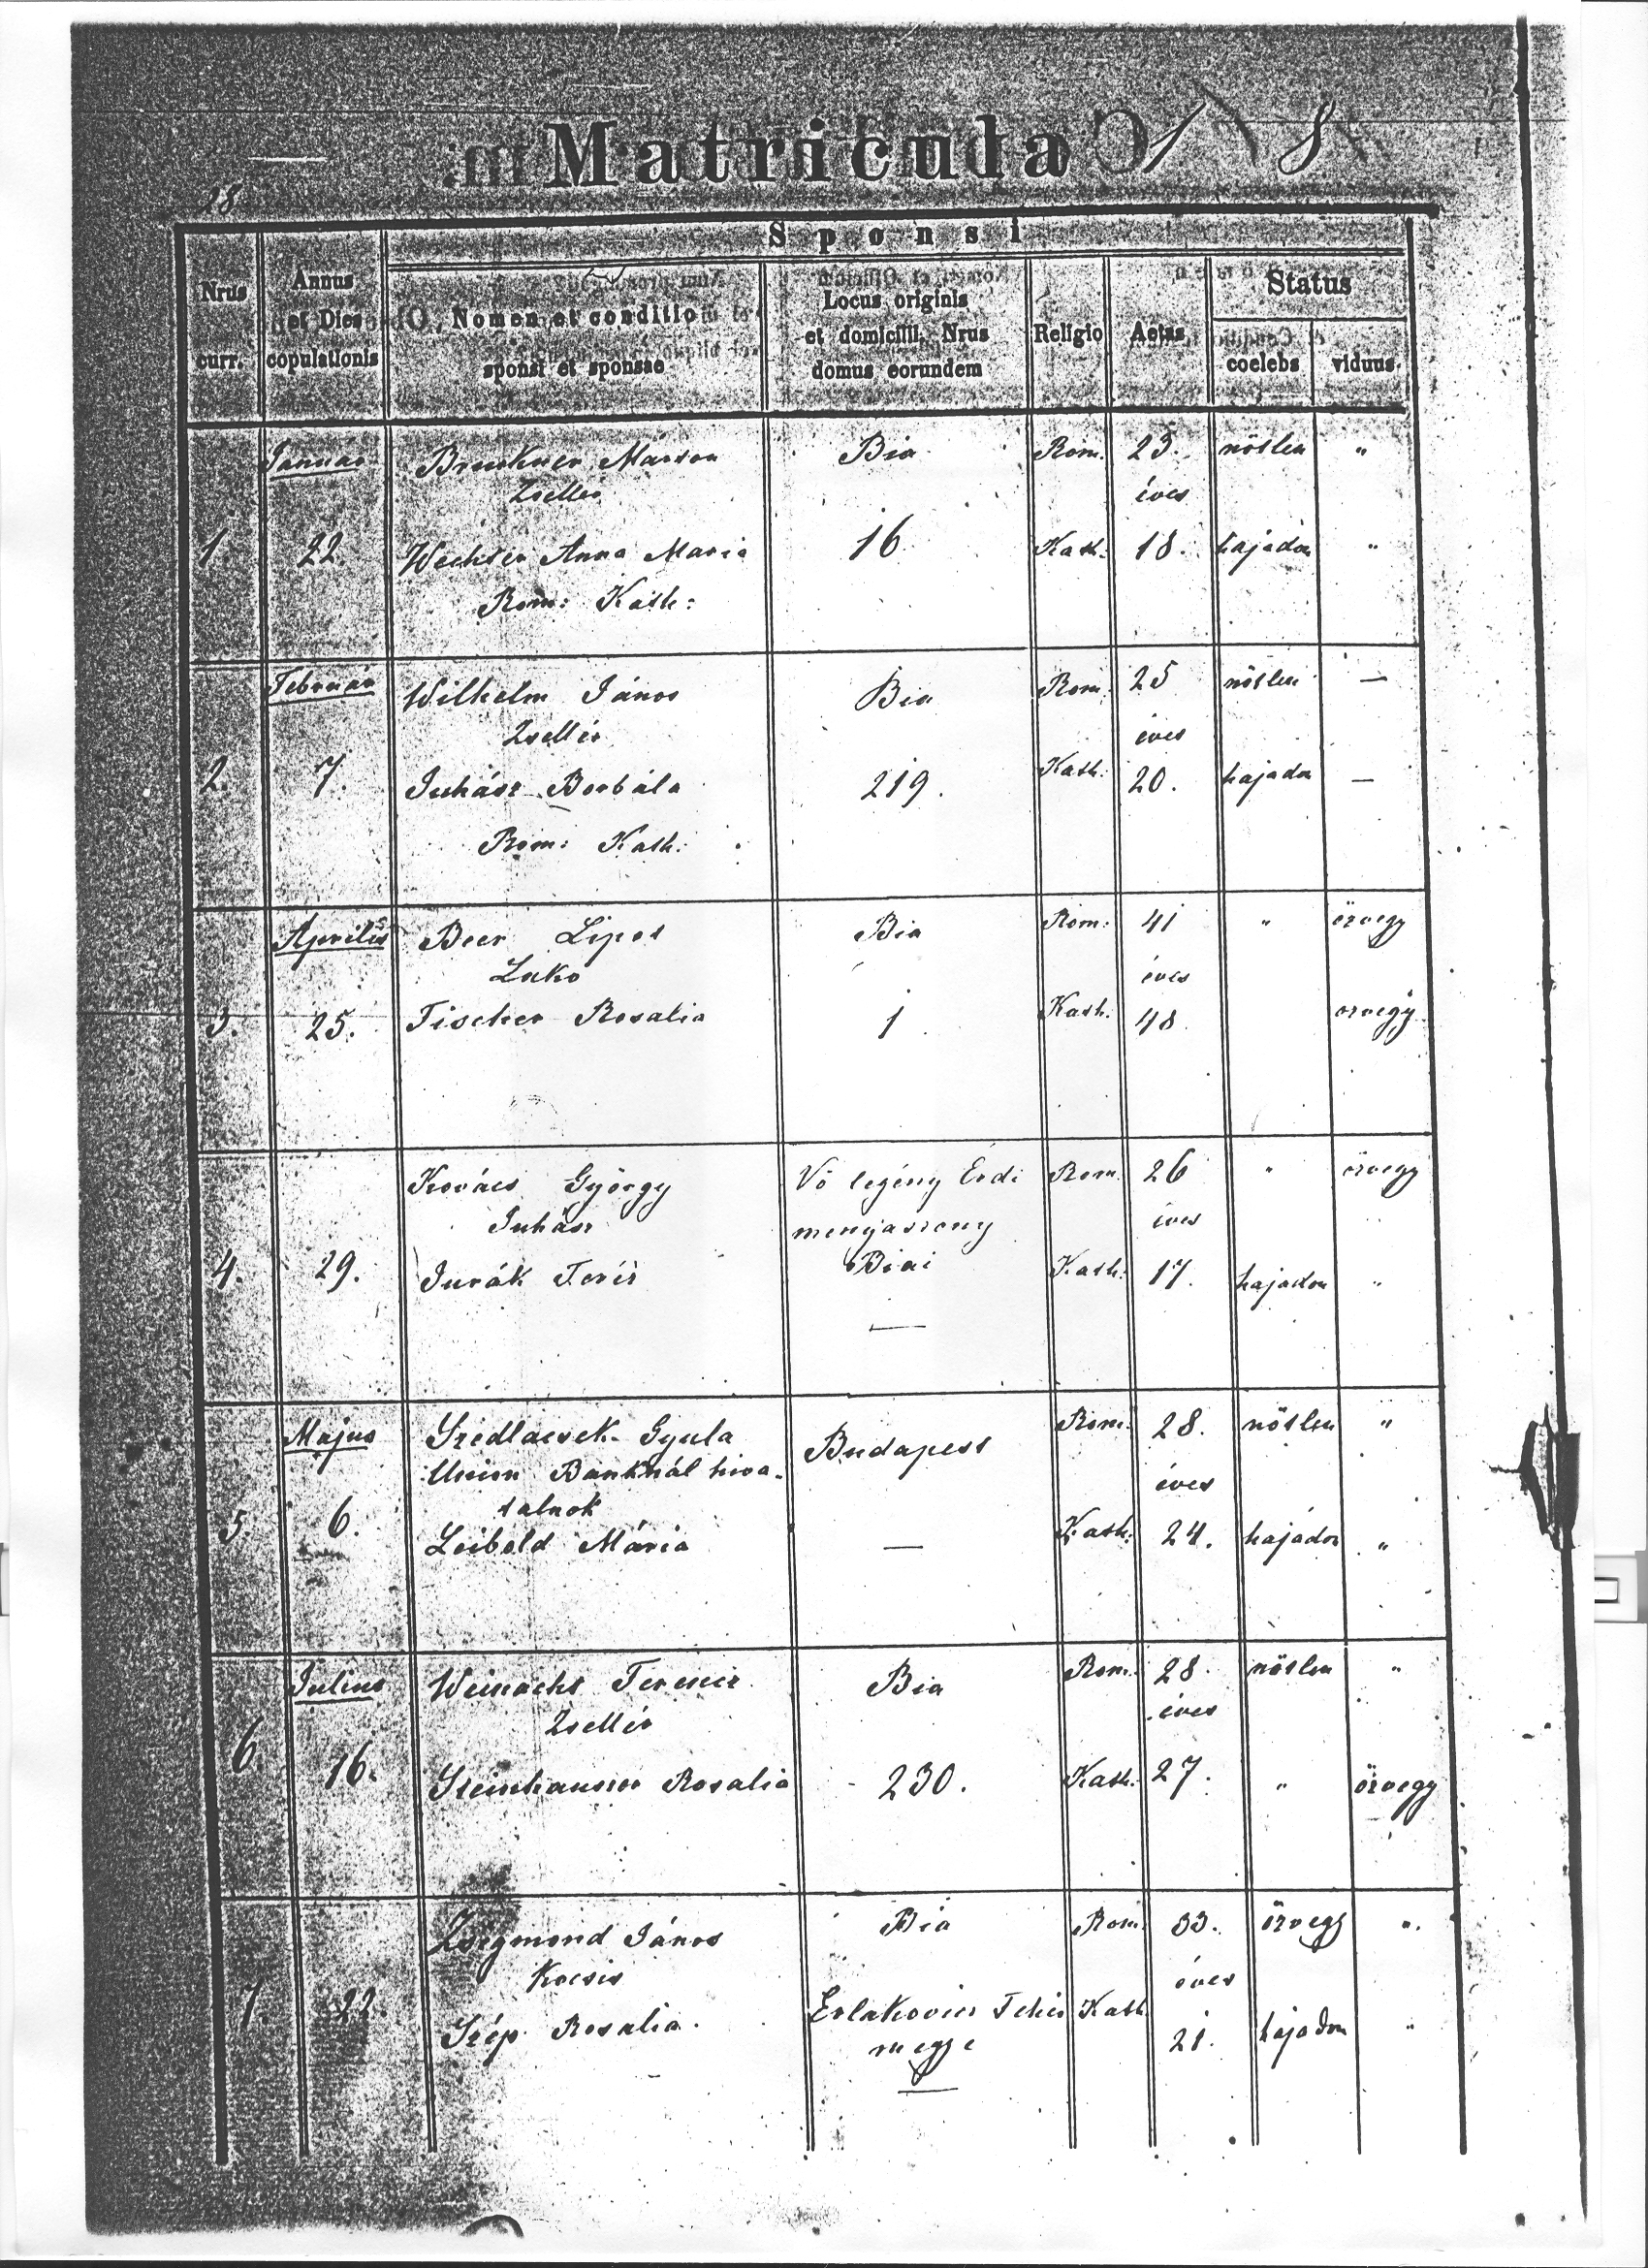 Matricula
Sponsi
Nrus curr.
Annus et Dies copulationis
Nomen et conditio sponsi et sponsae
Locus originis et domicilii, Nrus domus eorundem
Religio
Aetas
Status
coelebs
viduus.
1. Január 22.
Bruckner Márton Bia Rom. 23. nőtlen "
Zsellér éves
Wechter Anna Maria 16 Kath. 18. hajadon "
Rom: Kath:
2. Február 7.
Wilhelm János Bia Rom. 25 nőtlen —
Zsellér éves
Juhász Borbála 219. Kath. 20. hajadon —
Rom: Kath:
3. Április 25.
Beer Lipot Bia Rom: 41 " özvegy
Lako éves
Fischer Rosalia 1 Kath. 48 özvegy
4. 29.
Kovács György Vő legény Érdi Rom. 26 " özvegy
Juhász menyasszony éves
Jurák Teréz Biai Kath. 17. hajadon "
—
5. Május 6.
Szedlacsek Gyula Budapest Rom. 28. nőtlen "
Union Banknál hiva-
talnok éves
Leibold Mária — Kath. 24. hajadon "
6 Julius 16.
Weinacht Ferencz Bia Rom. 28. nőtlen "
Zsellér éves
Steinhauser Rosalia 230. Kath. 27. " özvegy
7. 22
Zsigmond János Bia Rom. 33. özvegy "
Kocsis éves
Szép Rosalia. Kath 21. hajadon "
megye
—